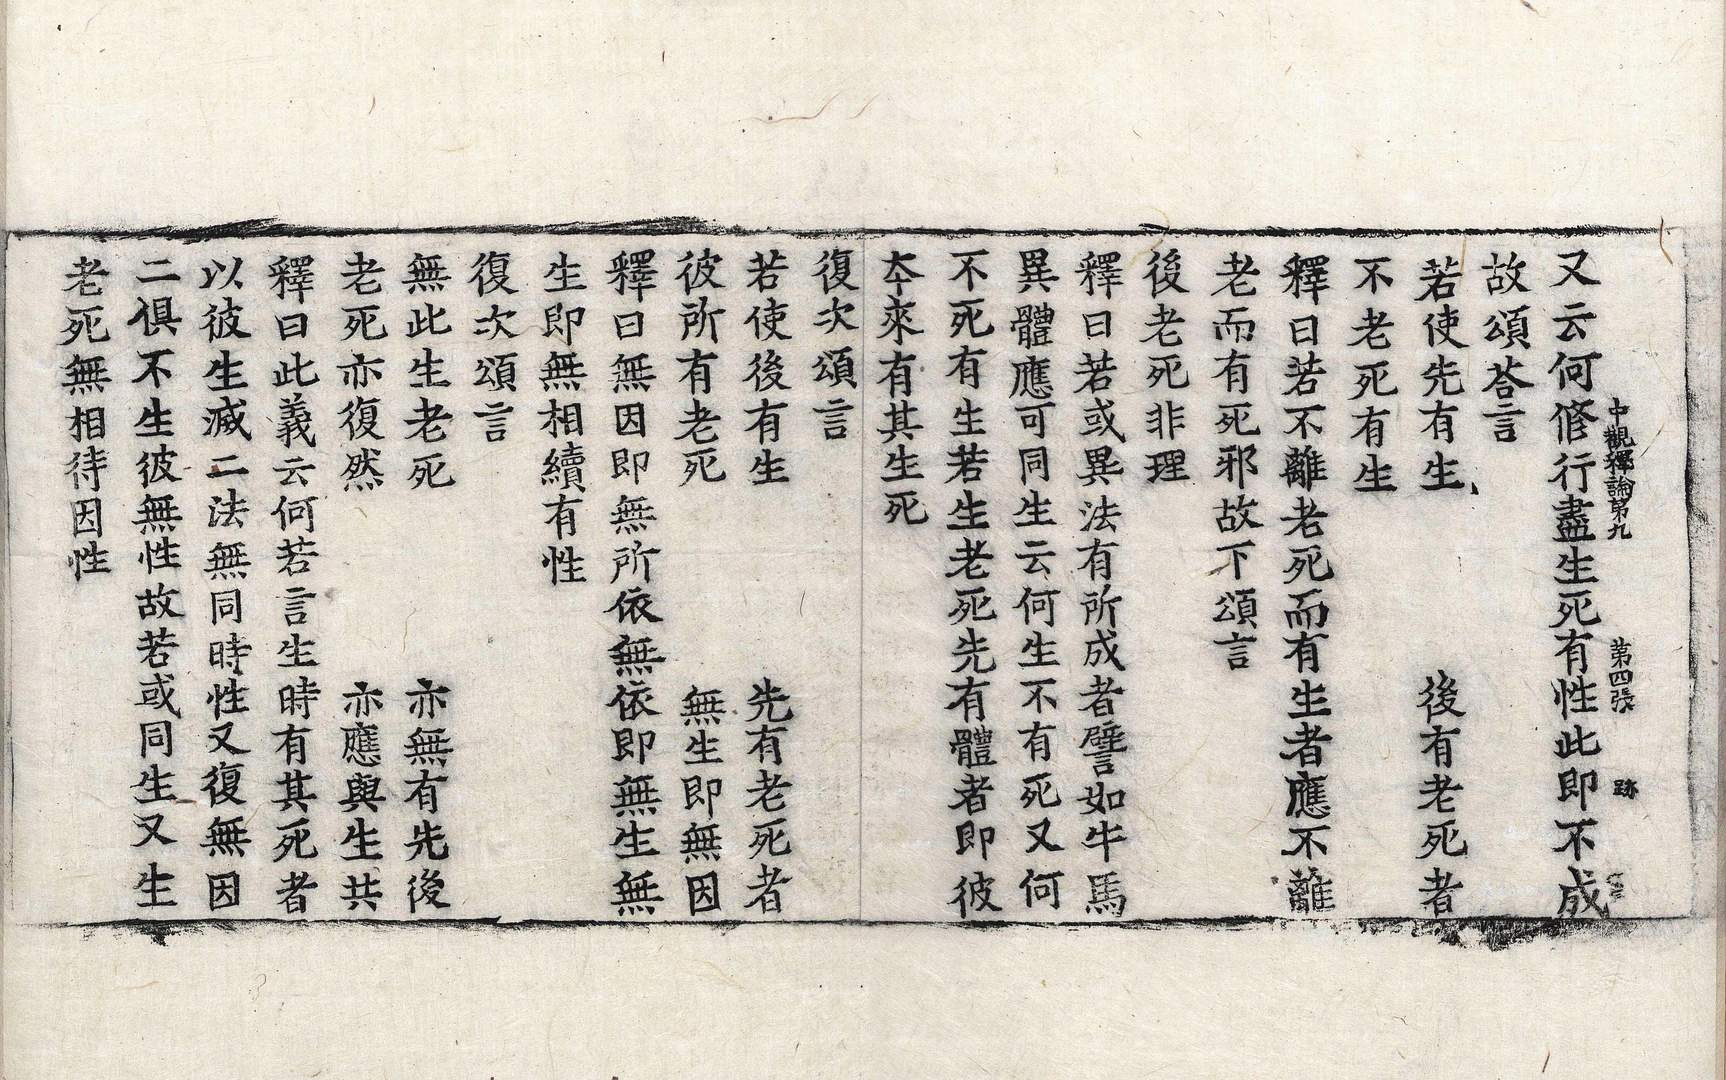 中觀釋論第九 第四張 跡
又云何修行盡生死有性此即不成
故頌荅言
若使先有生 後有老死者
不老死有生
釋曰若不離老死而有生者應不離
老而有死邪故下頌言
後老死非理
釋曰若或異法有所成者譬如牛馬
異體應可同生云何生不有死又何
不死有生若生老死先有體者即彼
夲來有其生死
復次頌言
若使後有生 先有老死者
彼所有老死 無生即無因
釋曰無因即無所依無依即無生無
生即無相續有性
復次頌言
無此生老死 亦無有先後
老死亦復然 亦應與生共
釋曰此義云何若言生時有其死者
以彼生滅二法無同時性又復無因
二俱不生彼無性故若或同生又生
老死無相待因性